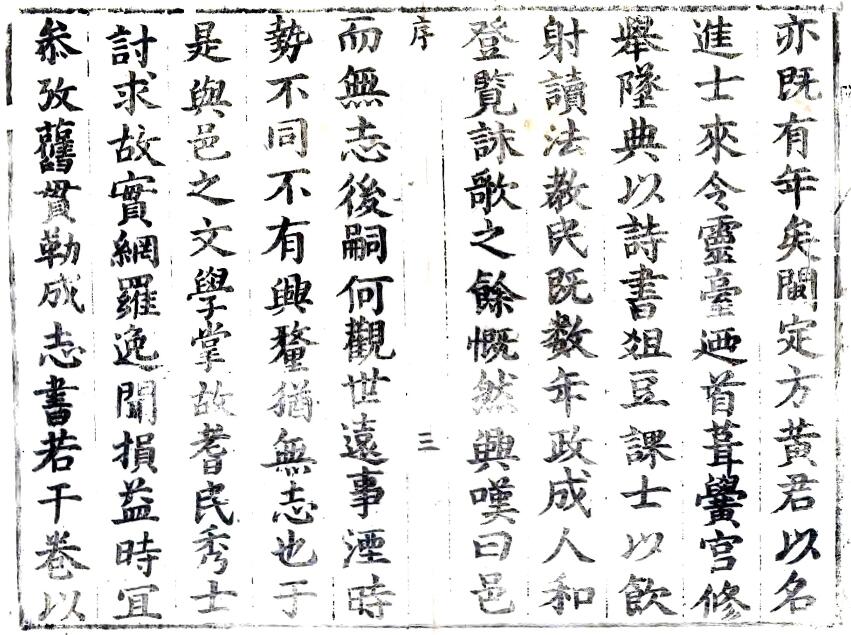 亦既有年矣閩定方黄君以名
進士來令靈臺廼首葺黌宫修
舉墜典以詩書爼豆課士以飲
射讀法教民既数年政成人和
登覽詠歌之餘慨然興嘆曰邑
序 三
而無志後嗣何觀世遠事湮時
勢不同不有興釐猶無志也于
是與邑之文學掌故耆民秀士
討求故實網羅逸聞損益時冝
叅攷舊貫勒成志書若干卷以